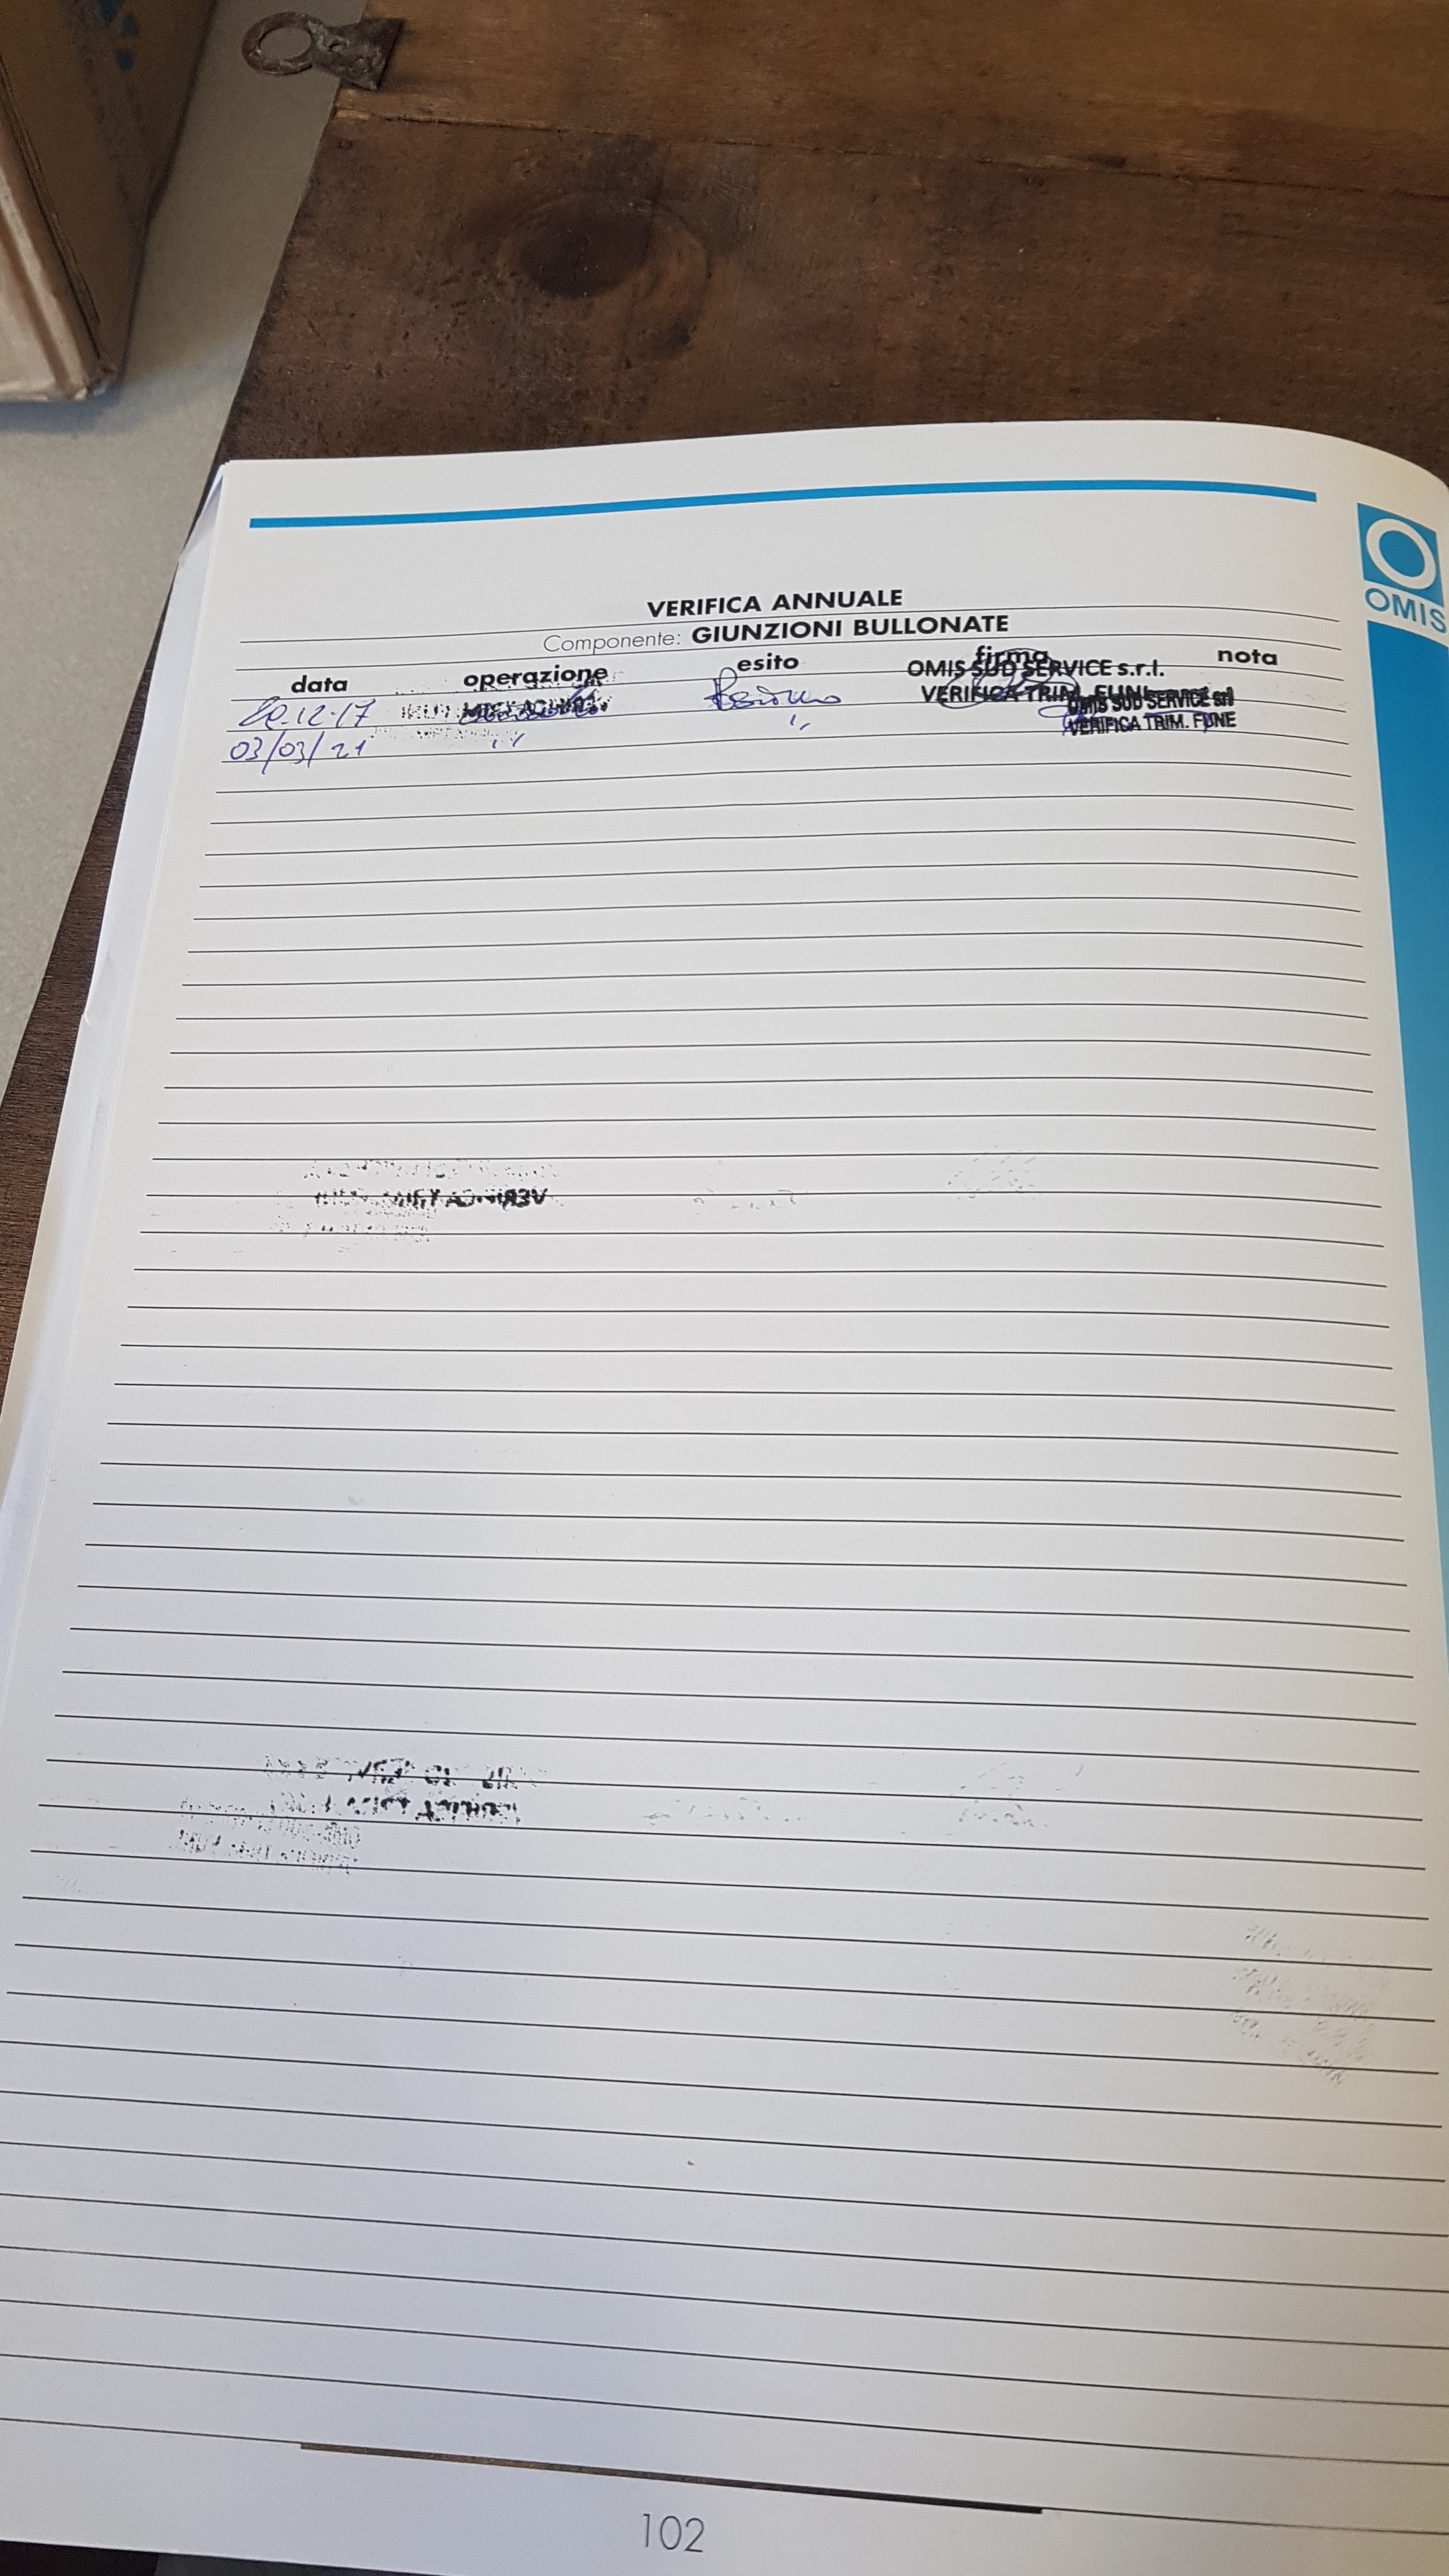 OMIS
VERIFICA ANNUALE
Componente: GIUNZIONI BULLONATE
data operazione esito firma nota
OMIS SUD SERVICE s.r.l.
20.12.17 VERIFICA TRIM. FUNI
OMIS SUD SERVICE srl
03/03/21 " " VERIFICA TRIM. FUNE
102